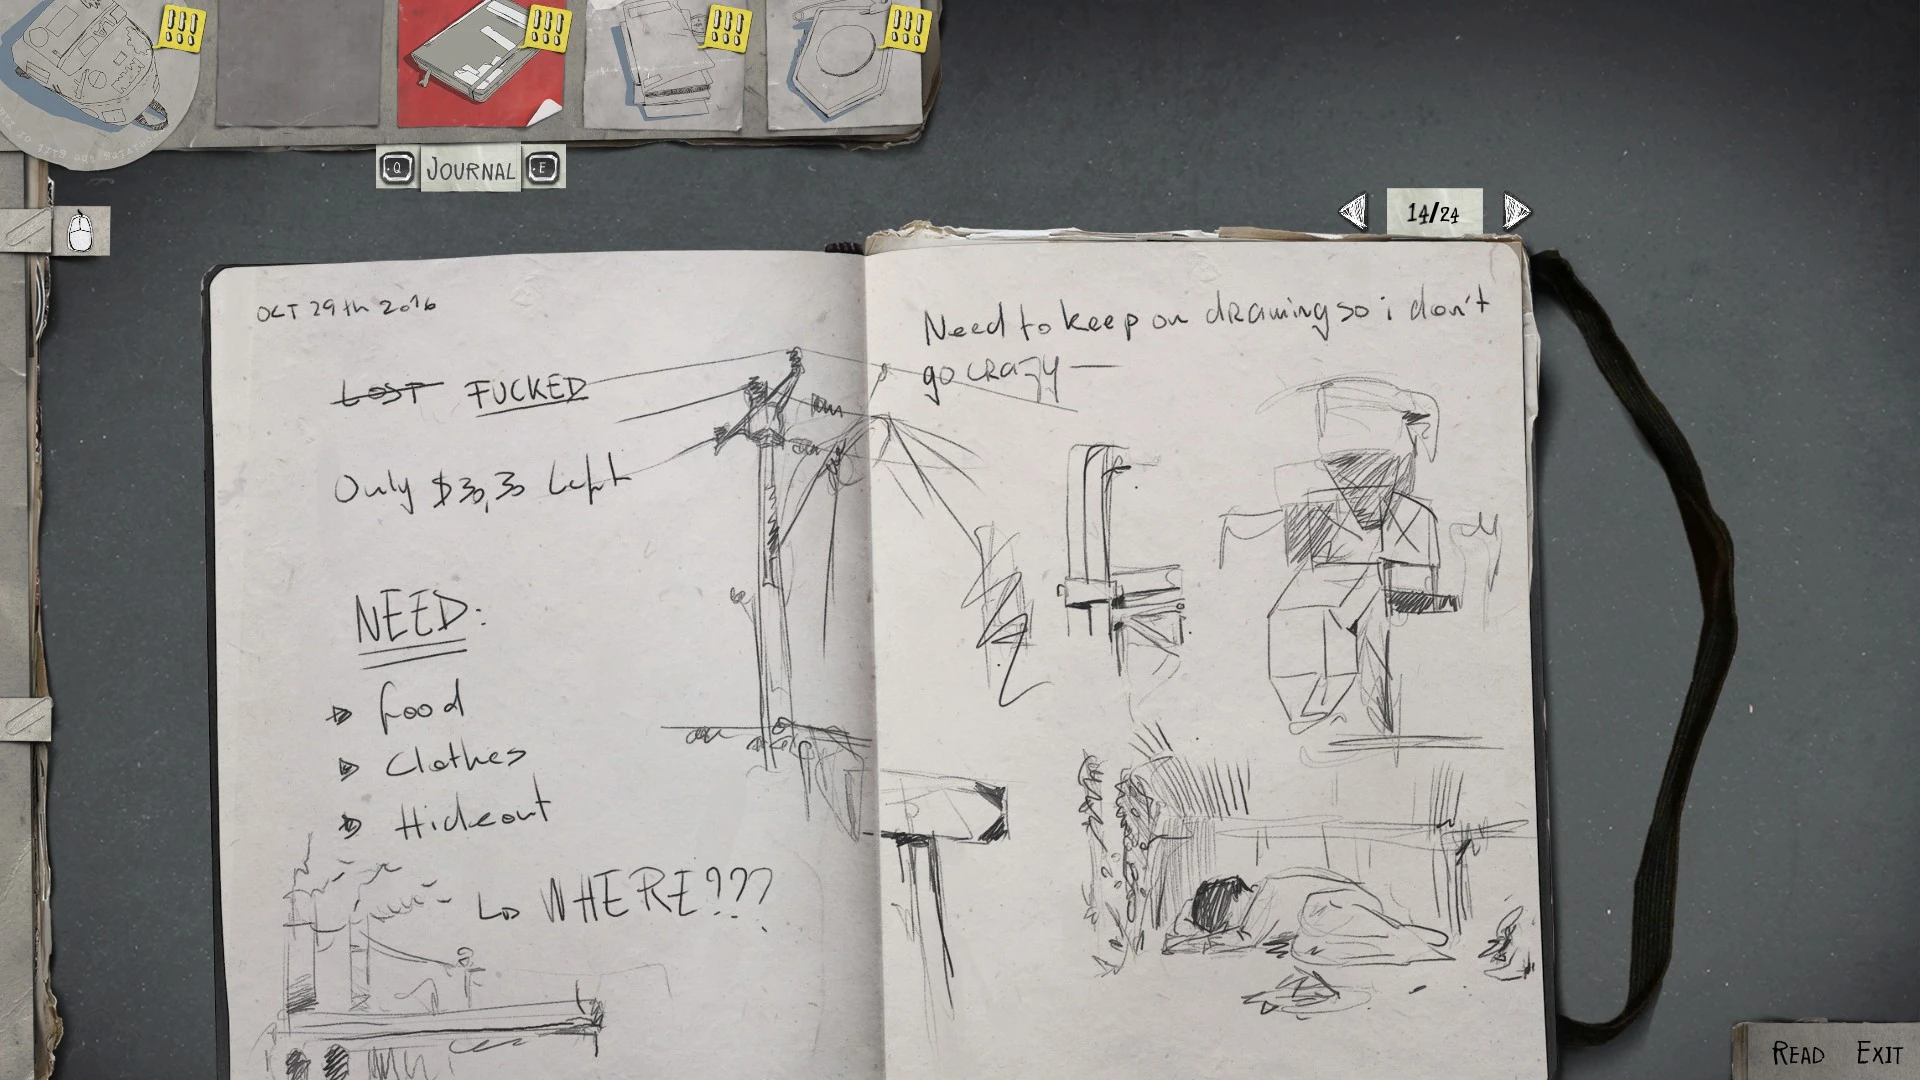 Q JOURNAL E
14/24
OCT 29th 2016
LOST FUCKED
Only $30,30 left
NEED:
food
Clothes
Hideout
WHERE???
Need to keep on drawing so i don't
go crazy —
READ EXIT